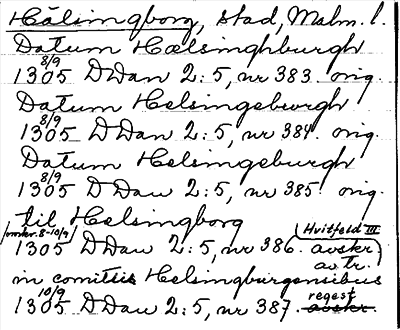 Hälsingborg, stad, Malm. l.
Datum Hælsinghburgh
8/9
1305 DDan 2:5, nr 383. orig.
Datum Helsingeburgh
8/9
1305 DDan 2:5, nr 384. orig.
Datum Helsingeburgh
8/9
1305 DDan 2:5, nr 385. orig.
til Helsingborg
(omkr. 8-10/9) Hvitfeld III
1305 DDan 2:5, nr 386. avskr.
av tr.
in comitiis Helsingburgensibus
10/9 regest
1305 DDan 2:5, nr 387. avskr.